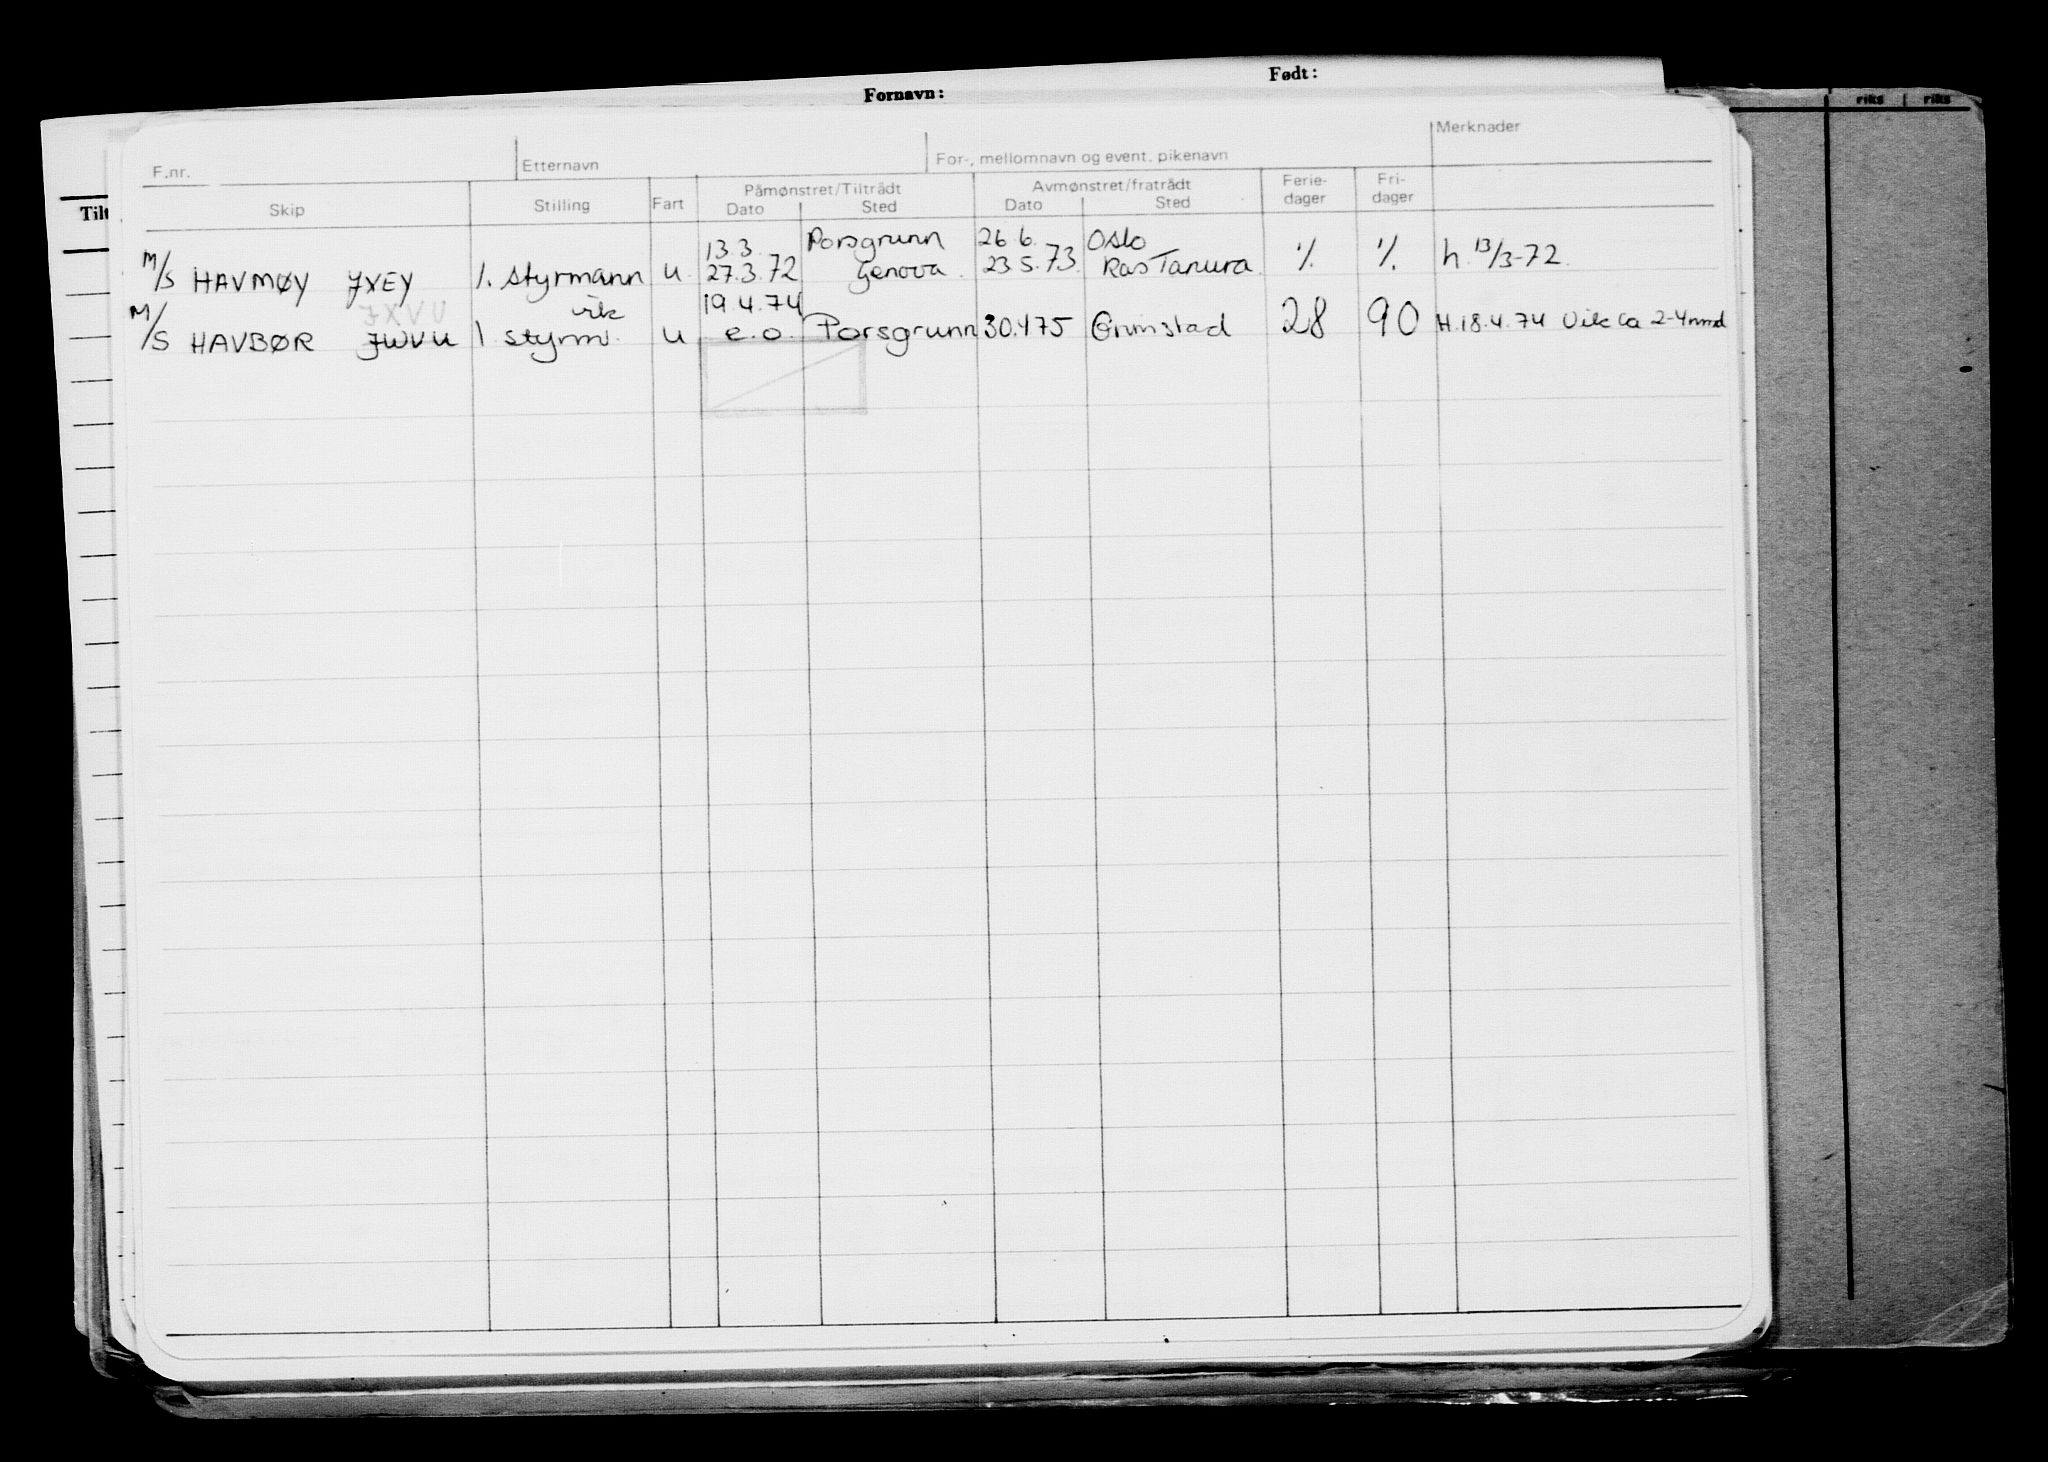 Født:
Fornavn:
riks riks
Merknader
F.nr. Etternavn For-, mellomnavn og event. pikenavn
Tilt
Skip Stilling Fart Påmønstret/Tiltrådt Avmønstret/fratrådt Ferie-dager Fri-dager
Dato Sted Dato Sted
13.3. Porsgrunn 26.6. Oslo
M/S HAVMØY JXEY 1. styrmann u 27.3.72 Genova. 23.5.73. Ras Tanura. % % h. 13/3-72.
JXVU vik 19.4.74
M/S HAVBØR JWVU 1 styrm. u e.o. Porsgrunn 30.475 Grimstad 28 90 H.18.4.74 Vik ca 2-4mnd